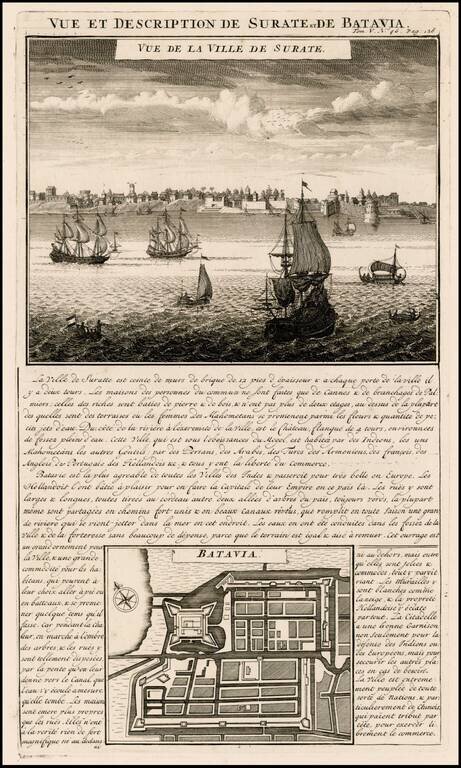 VUE ET DESCRIPTION DE SURATE ET DE BATAVIA.
Tom. V. N.º 46. Pag. 126.
VUE DE LA VILLE DE SURATE.
La Ville de Suratte est ceinte de murs de brique de 12 pies d'épaisseur & a chaque porte de la ville il
y a deux tours. Les maisons des personnes du commun ne sont faites que de Cannes & de branchages de Pal
miers; celles des riches sont bâties de pierre & de bois & n'ont pas plus de deux étages, au dessus de la plûpart
des quelles sont des terrasses ou les femmes des Mahometans se promenent parmi les fleurs & quantité de pe
tits jets d'eau. Du côté de la riviere à l'extremité de la Ville est le Château flanqué de 4 tours, environnées
de fossez pleins d'eau. Cette Ville qui est sous l'obeissance du Mogol est habitée par des Indiens, les uns
Mahometans les autres Gentils, par des Persans, des Arabes, des Turcs des Armeniens, des françois des
Anglois des Portugais des Hollandois &c & tous y ont la liberté du commerce.
Batavie est la plus agreable de toutes les Villes des Indes & passeroit pour très belle en Europe. Les
Hollandois l'ont bâtie à plaisir pour en faire la capitale de leur Empire en ce païs là. Les rües y sont
larges & longues, toutes tirées au cordeau entre deux allées d'arbres du païs toujours verds, la plupart
même sont partagées en chemins fort unis & en beaux canaux revêtus, que remplit en toute saison une gran
de riviere qui se vient jetter dans la mer en cet endroit. Les eaux en ont été conduites dans les fossez de la
Ville & de la forteresse sans beaucoup de depense, parce que le terrain est égal & aisé à remuer. Cet ouvrage est
un grand ornement pour
la Ville, & une grande
commodité pour les ha
bitans qui peuvent à
leur choix aller à pié ou
en batteaux, & se prome
ner quelque tems qu'il
fasse. Car pendant la cha
leur, on marche à l'ombre
des arbres, & les rües y
sont tellement disposées,
par la pente qu'on leur
donne vers le Canal, que
l'eau s'y écoule à mesure
qu'elle tombe. Les maisons
sont encore plus propres
que les rües. Elles n'ont
à la verité rien de fort
magnifique ni au dedans
ni
BATAVIA.
ni au dehors, mais outre
qu'elles sont jolies &
commodes, tout y paroit
riant. Les Murailles y
sont blanches comme
la neige, & la propreté
Hollandoise y éclate
partout. La Citadelle
a une bonne Garnison
non seulement pour la
defense des Indiens ou
des Europeens, mais pour
secourir les autres pla
ces en cas de besoin.
La Ville est extreme
ment peuplée de toute
sorte de Nations, & par
ticulierement de Chinois,
qui paient tribut par
tête, pour exercer li
brement le commerce.